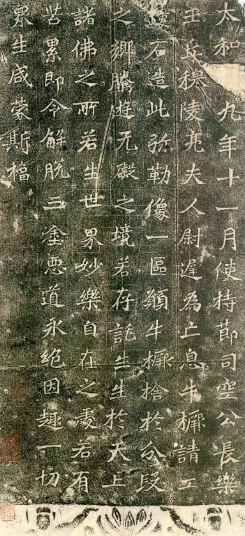 太和□九年十一月使持節司空公長樂
王丘穆陵亮夫人尉遲為亡息牛橛請工
鏤石造此弥勒像一區願牛橛捨於分段
之鄉騰遊无礙之境若存託生生於天上
諸佛之所若生世界妙樂自在之處若有
苦累即令解脱三塗惡道永絶因趣一切
眾生咸蒙斯福